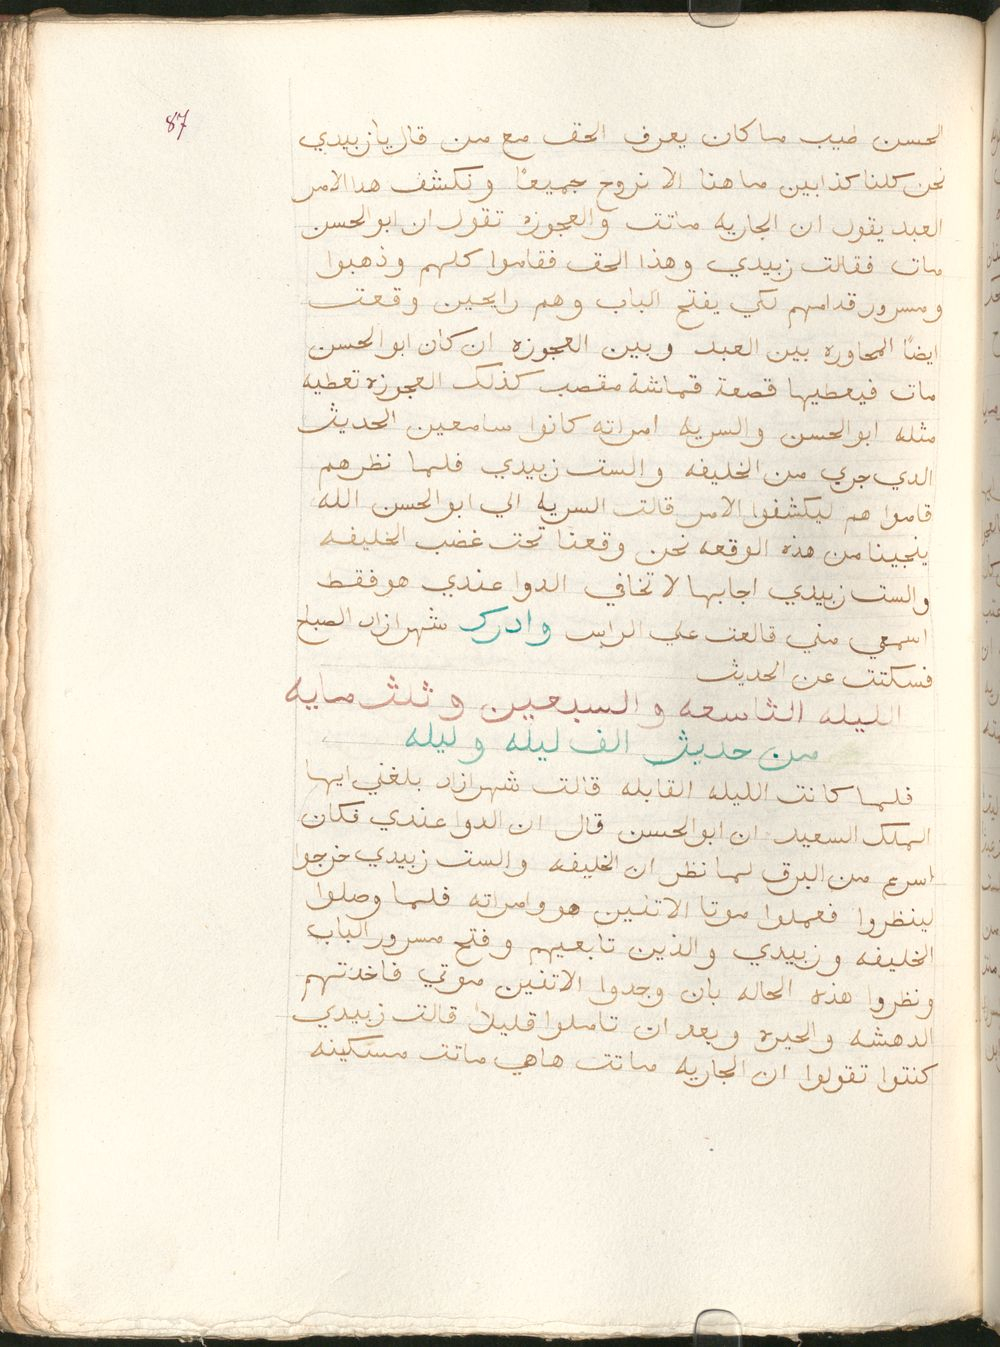 87
الحسن طيب ما كان يعرف الحق مع من قال يا زبيدي
نحن كلنا كذابين ما هنا الا نروح جميعًا ونكشف هدا الامر
العبد يقول ان الجاريه ماتت والعجوزه تقول ان ابو الحسن
مات فقالت زبيدي وهذا الحق فقاموا كلهم وذهبوا
ومسرور قدامهم لكي يفتح الباب وهم رايحين وقعت
ايضًا المحاوره بين العبد وبين العجوزه ان كان ابو الحسن
مات فيعطيها قصعة قماشة مقصب كذلك العجوزه تعطيه
مثله ابو الحسن والسريه امراته كانوا سامعين الحديث
الدي جري من الخليفه والست زبيدي فلما نظرهم
قاموا هم ليكشفوا الامر قالت السريه الي ابو الحسن الله
ينجينا من هذه الوقعه نحن وقعنا تحت غضب الخليفه
والست زبيدي اجابها لا تخافي الدوا عندي هو فقط
اسمعي مني قالت علي الراس وادرك شهرازاد الصباح
فسكتت عن الحديث
الليله التاسعه والسبعين وثلث مايه
من حديث الف ليله وليله
فلما كانت الليله القابله قالت شهرازاد بلغني ايها
الملك السعيد ان ابو الحسن قال ان الدوا عندي فكان
اسرع من البرق لما نظر ان الخليفه والست زبيدي خرجوا
لينظروا فعملوا موتا الاتنين هو وامراته فلما وصلوا
الخليفه وزبيدي والذين تابعيهم وفتح مسرور الباب
ونظروا هذه الحاله بان وجدوا الاتنين موتي فاخدتهم
الدهشه والحيره وبعد ان تاملوا قليلا قالت زبيدي
كنتوا تقولوا ان الجاريه ماتت ها هي ماتت مسكينه